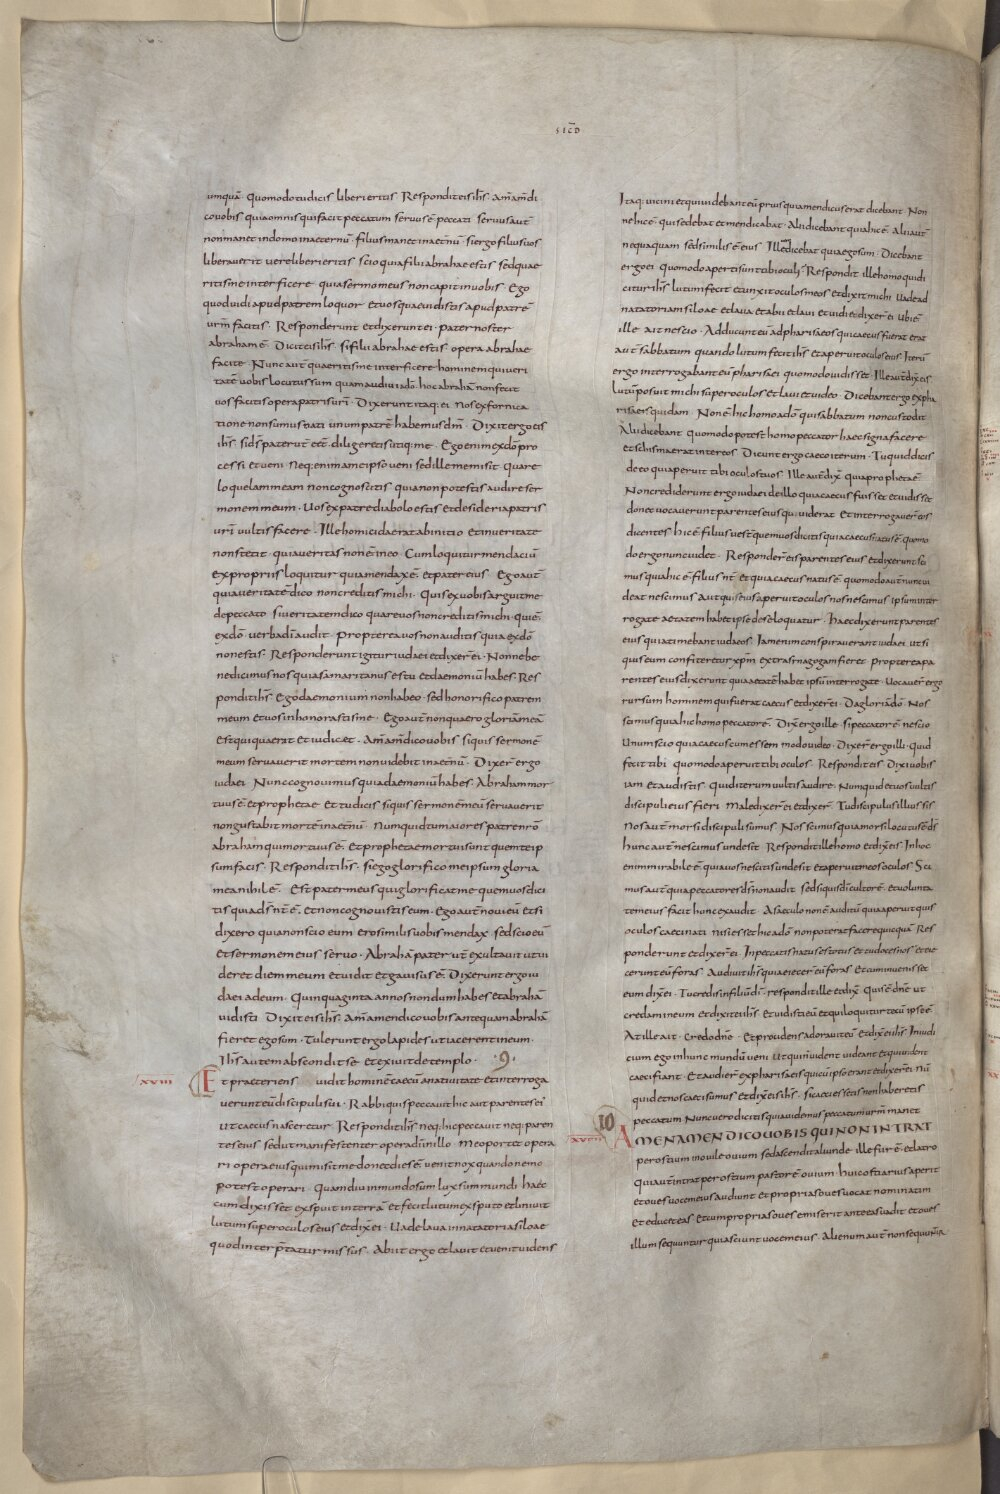 SICD̄
umquā· Quomodo tu dicis liberi eritis Respondit eis ih̄s Am̄ am̄ di
co uobis quia omnis qui facit peccatum seruus ē peccati seruus aut̄
non manet in domo in aeternū· filius manet in aet̄nū· si ergo filius uos
liberauerit uere liberi eritis scio quia filii abrahae estis sed quae
ritis me interficere quia sermo meus non capit in uobis· Ego
quod uidi apud patrem loquor et uos quae uidistis apud patrē
ur̄m facitis· Responderunt et dixerunt ei· pater noster
abraham ē· Dicit eis ih̄s· si filii abrahae estis opera abrahae
facite· Nunc aut̄ quaeritis me interficere hominem qui ueri
tatē uobis locutus sum quam audiui a dō· hoc abrahā non fecit
uos facitis opera patris ur̄i· Dixerunt itaq; ei Nos ex fornica
tione non sumus nati unum patrē habemus dm̄· Dixit ergo eis
ih̄s· si ds̄ pater ur̄ eēt· diligeretis utiq; me· Ego enim ex dō pro
cessi et ueni neq; enim a me ipso ueni sed ille me misit quare
loquelam meam non cognoscitis quia non potestis audire ser
monem meum· Uos ex patre diabolo estis et desideria patris
ur̄i uultis facere· Ille homicida erat ab initio et in ueritate
non stetit quia ueritas non ē in eo· Cum loquitur mendaciū
ex propriis loquitur quia mendax ē· et pater eius· Ego aut̄
quia ueritatē dico non creditis michi· Quis ex uobis arguit me
de peccato si ueritatē dico quare uos non creditis michi· qui ē
ex dō· uerba dī audit· Propterea uos non auditis quia ex dō
non estis· Responderunt igitur iudaei et dixer̄ ei· Nonne be
ne dicimus nos quia samaritanus es tu et daemoniū habes· Res
pondit ih̄s Ego daemonium non habeo· sed honorifico patrem
meum et uos inhonorastis me· Ego aut̄ non quaero gloriā meā
Est qui quaerat et iudicet· Am̄ am̄ dico uobis siquis sermonē
meum seruauerit mortem non uidebit in aet̄nū· Dixer̄ ergo
iudaei Nunc cognouimus quia daemoniū habes· Abraham mor
tuus ē et prophetae Et tu dicis siquis sermonē meū seruauerit
non gustabit mortē in aet̄nū· Numquid tu maior es patre n̄rō
abraham qui mortuus ē· Et prophetae mortui sunt quem te ip
sum facis· Respondit ih̄s· si ego glorifico me ipsum gloria
mea nihil ē· Est pater meus qui glorificat me quem uos dici
tis quia ds̄ nr̄ ē· et non cognouistis eum· Ego aut̄ noui eū et si
dixero quia non scio eum ero similis uobis mendax sed scio eū
et sermonem eius seruo· Abrahā pater ur̄ exultauit ut ui
deret diem meum et uidit et gauisus ē· Dixerunt ergo iu
daei ad eum· Quinquaginta annos nondum habes et abrahā
uidisti Dixit eis ih̄s· Am̄ amen dico uobis antequam abrahā
fieret ego sum· Tulerunt ergo lapides ut iacerent in eum·
Ih̄s autem abscondit se et exiuit de templo· ·9·
XXVIII Et praeteriens uidit hominē caecū a natiuitate et interroga
uerunt eū discipuli sui· Rabbi quis peccauit hic aut parentes ei'
ut caecus nasceretur Respondit ih̄s neq; hic peccauit neq; paren
tes eius sed ut manifestentur opera dī in illo Me oportet opera
ri opera eius qui misit me donec dies ē· uenit nox quando nemo
potest operari· Quamdiu in mundo sum lux sum mundi haec
cum dixisset exspuit in terrā Et fecit lutum ex sputo et liniuit
lutum super oculos eius et dix̄ ei· Uade laua in natatoria siloae
quod interp̄tatur missus· Abiit ergo et lauit et uenit uidens
Itaq; uicini et qui uidebant eū prius quia mendicus erat dicebant· Non
ne hic ē· qui sedebat et mendicabat· Alii dicebant quia hic ē· Alii aut̄
nequaquam sed similis ē eius Ille dicebat quia ego sum· Dicebant
ergo ei quomodo aperti sunt tibi oculi Respondit ille homo qui di
citur ih̄s lutum fecit et unxit oculos meos et dixit michi Uade ad
natatoriam siloae et laua et abii et laui et uidi et dixer̄ ei ubi ē
ille ait nescio· Adducunt eū ad pharisaeos qui caecus fuerat erat
aut̄ sabbatum quando lutum fecit ih̄s et aperuit oculos eius· Iterū
ergo interrogabant eū pharisaei quomodo uidisset· Ille aut̄ dix̄ eis
lutū posuit michi super oculos et laui et uideo· Dicebant ergo ex pha
risaeis quidam· Non ē hic homo a dō qui sabbatum non custodit
Alii dicebant quomodo potest homo peccator haec signa facere
et schisma erat inter eos Dicunt ergo caeco iterum· Tu quid dicis
de eo qui aperuit tibi oculos tuos· Ille aut̄ dix̄ quia propheta ē
Non crediderunt ergo iudaei de illo quia caecus fuisset et uidisset
donec uocauerunt parentes eius qui uiderat et interrogauer̄ eos
dicentes hic ē filius uester quem uos dicitis quia caecus natus ē· quomo
do ergo nunc uidet· Responder̄ eis parentes eius et dixerunt sci
mus quia hic ē filius nr̄ et quia caecus natus ē quomodo aut̄ nunc ui
deat nescimus aut quis eius aperuit oculos nos nescimus ipsum inter
rogate aetatem habet ipse de se loquatur· haec dixerunt parentes
eius quia timebant iudaeos Iam enim conspirauerant iudaei ut si
quis eum confiteretur xpm̄ extra synagogam fieret propterea pa
rentes eius dixerunt quia aetatē habet ipsū interrogate· Uocauer̄ ergo
rursum hominem qui fuerat caecus et dixer̄ ei· Da gloriā dō· Nos
scimus quia hic homo peccator ē· Dix̄ ergo ille si peccator ē nescio
Unum scio quia caecus cum essem modo uideo· Dixer̄ ergo illi· Quid
fecit tibi quomodo aperuit tibi oculos· Respondit eis Dixi uobis
iam et audistis Quid iterum uultis audire· Numquid et uos uultis
discipuli eius fieri Maledixer̄ ei et dixer̄ Tu discipulus illius sis
Nos aut̄ mosi discipuli sumus Nos scimus quia mosi locutus ē ds̄
hunc aut̄ nescimus unde sit Respondit ille homo et dix̄ eis In hoc
enim mirabile ē quia uos nescitis unde sit et aperuit meos oculos Sci
mus aut̄ quia peccatores ds̄ non audit sed siquis dī cultor ē et uolunta
tem eius facit hunc exaudit A saeculo non ē auditū quia aperuit quis
oculos caeci nati nisi esset hic a dō non poterat facere quicquā Res
ponderunt et dixer̄ ei· In peccatis natus es totus et tu doces nos et eie
cerunt eū foras Audiuit ih̄s quia eiecer̄ eū foras et cum inuenisset
eum dix̄ ei· Tu credis in filiū dī· respondit ille et dix̄ Quis ē dn̄e ut
credam in eum et dixit ei ih̄s· Et uidisti eū et qui loquitur tecū ipse ē·
At ille ait· Credo dn̄e· Et procidens adorauit eū Et dix̄ ei ih̄s In iudi
cium ego in hunc mundū ueni ut qui n̄ uident uideant et qui uident
caeci fiant· Et audier̄ ex pharisaeis qui cū ipso erant et dixer̄ ei Nū
quid et nos caeci sumus et dix̄ eis ih̄s· si caeci essetis non haberetis
peccatum Nunc uero dicitis quia uidemus peccatum ur̄m manet
10
XXVIIII AMEN AMEN DICO UOBIS QUI NON INTRAT
per ostium in ouile ouium sed ascendit aliunde ille fur ē et latro
Qui aut̄ intrat per ostium pastor ē ouium· huic ostiarius aperit
et oues uocem eius audiunt et proprias oues uocat nominatim
et educit eas Et cum proprias oues emiserit ante eas uadit et oues
illum sequuntur quia sciunt uocem eius· Alienum aut̄ non sequuntur